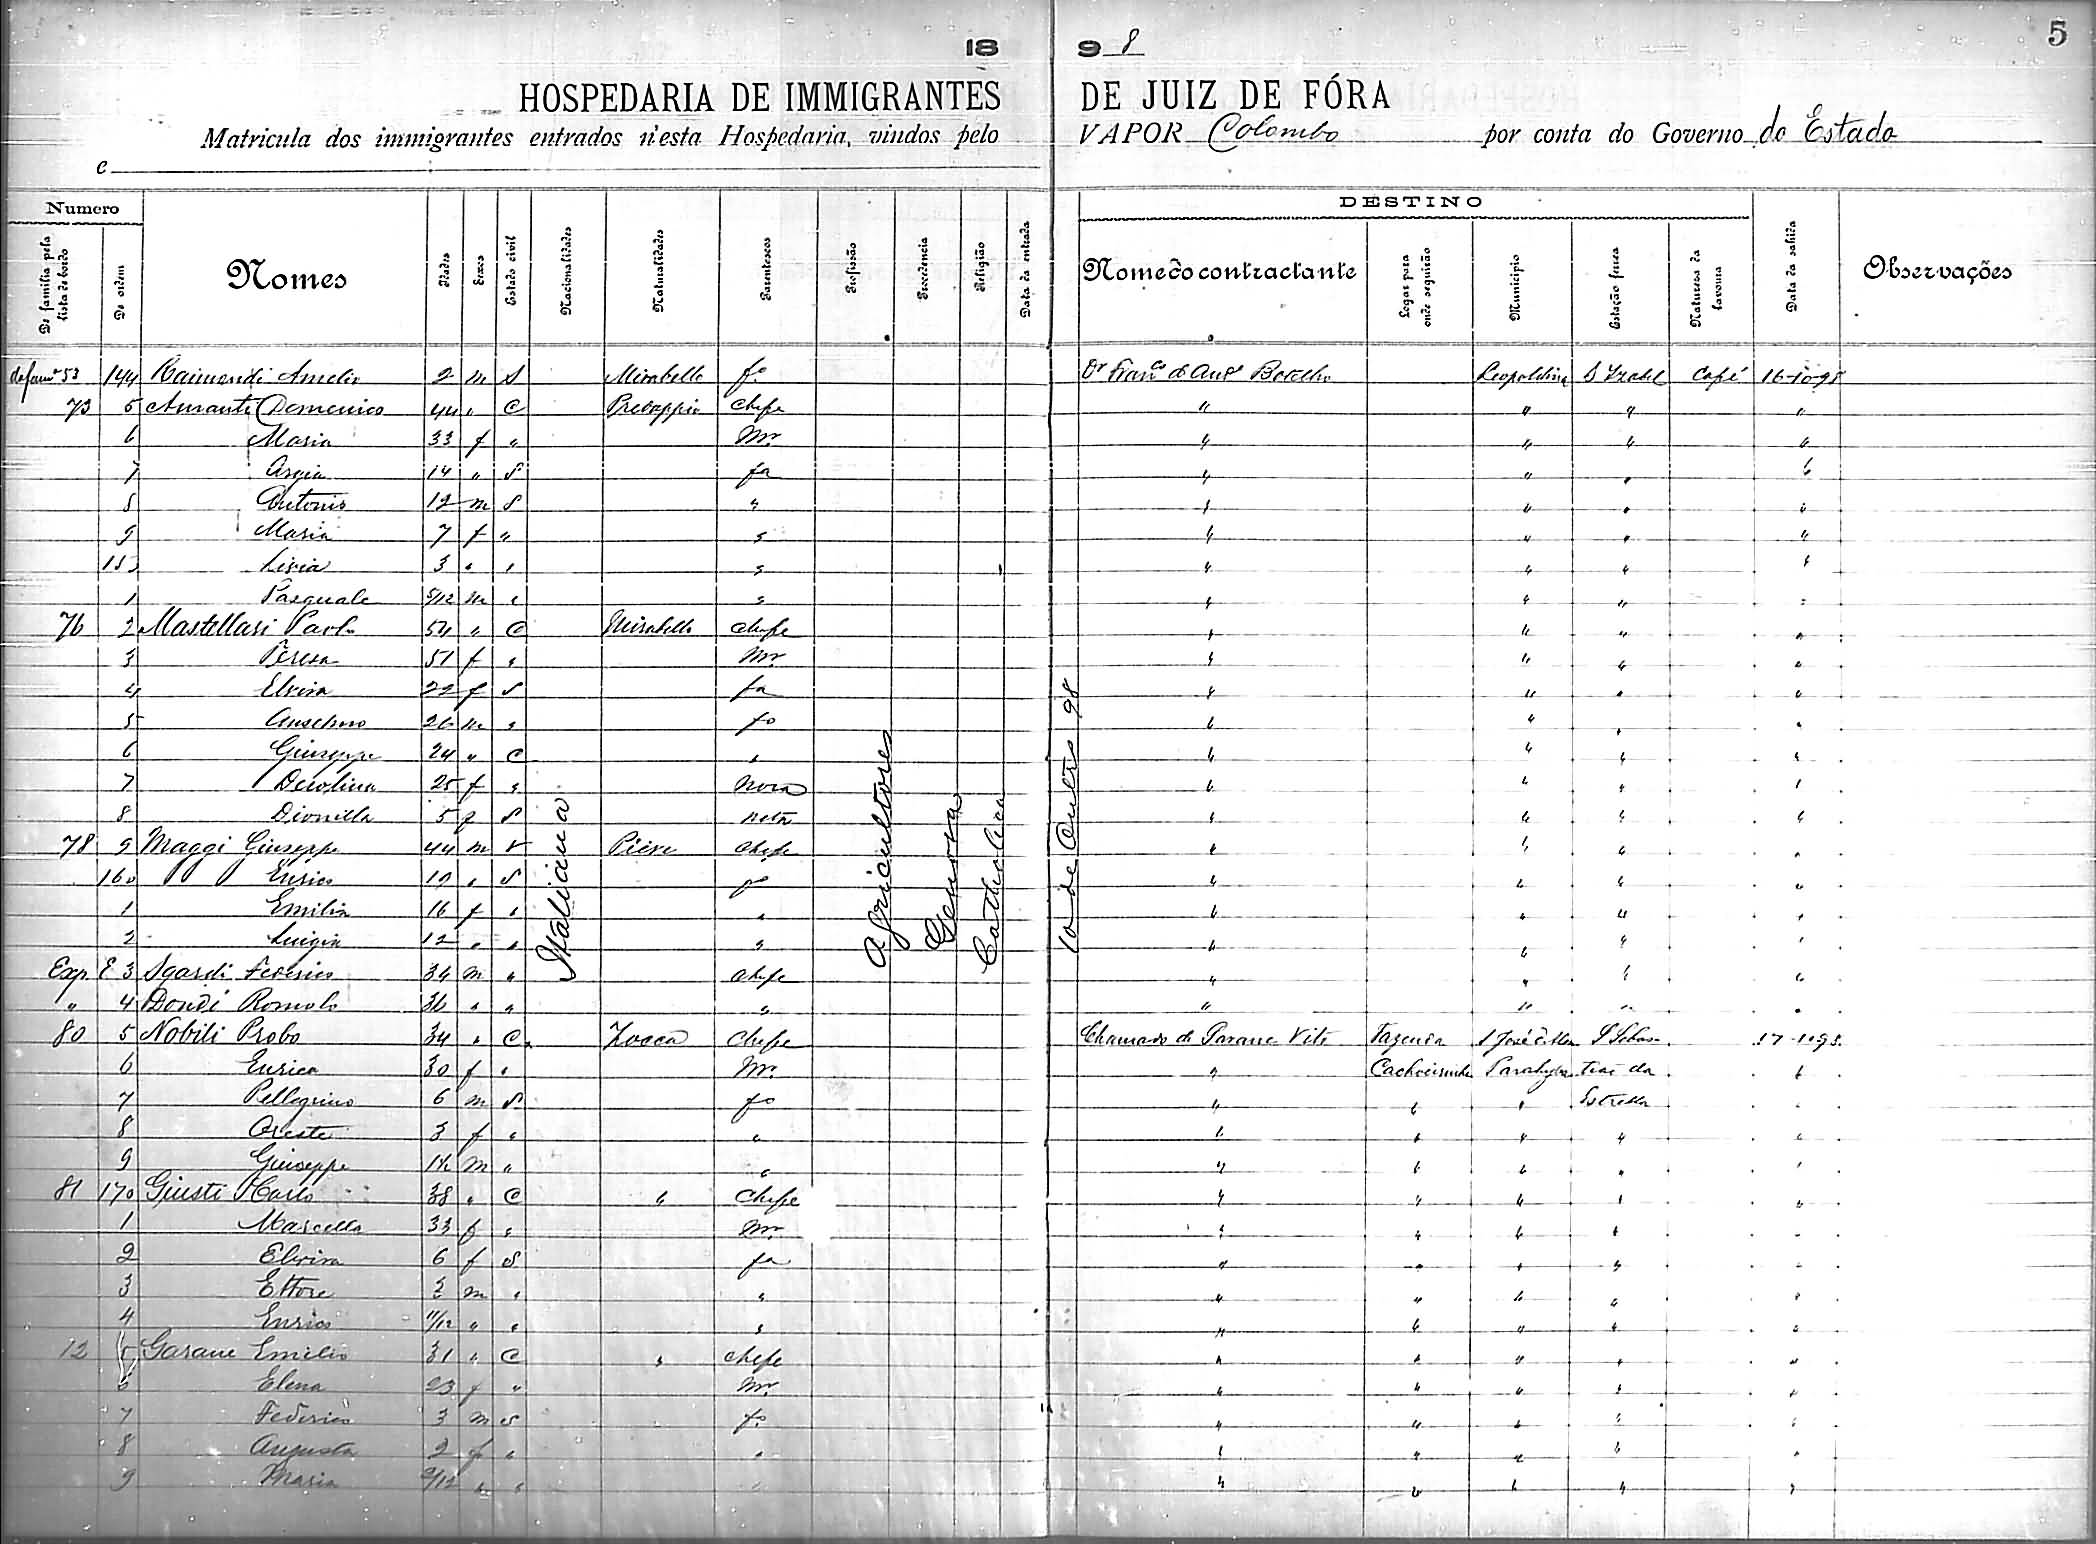 5
18 9 8
HOSPEDARIA DE IMMIGRANTES DE JUIZ DE FÓRA
Matricula dos immigrantes entrados n'esta Hospedaria, vindos pelo VAPOR Colombo por conta do Governo do Estado
e
Numero DESTINO
De familia pela lista de bordo De ordem Nomes Idades Sexos Estado civil Nacionalidades Naturalidades Parentescos Profissão Procedencia Religião Data da entrada Nome do contractante Logar para onde seguirão Municipio Estação ferrea Natureza da lavoura Data da sahida Observações
53 144 Raimondi Amelio 2 m S Mirabello fo Dr Franco Botelho Leopoldina S Izabel Café 16-10-98
73 5 Amanti Domenico 44 " C Predappio Chefe " " " "
6 Maria 33 f " Mr " " " "
7 Argia 14 " S fa " " " "
8 Antonio 12 m S " " " " "
9 Maria 7 f " " " " " "
15 Livia 3 " " " " " " "
1 Pasquale 5/12 m " " " " " "
76 2 Mastellari Paolo 54 " C Mirabello Chefe " " " "
3 Teresa 51 f " Mr " " " "
4 Elvira 22 f S fa " " " "
5 Anselmo 26 m " fo " " " "
6 Giuseppe 24 " C " " " " "
7 25 f " Nora " " " "
8 Dionilla 5 f S neta " " " "
78 9 Maggi Giuseppe 44 m V Pieve Chefe " " " "
160 Enrico 19 " S fo " " " "
1 Emilia 16 f " " " " " "
2 Luigia 12 " " " " " " "
Exp. E 3 Sgardi Federico 34 m " Chefe " " " "
" 4 Dondi Romolo 36 " " " " " " "
80 5 Nobili Probo 34 " C Zocca Chefe Chamado de Garane Vito Fazenda S José S Sebas- 17-10-98
6 Enrica 30 f " Mr " Cachoeirinha Parahyba tião da "
7 Pellegrino 6 m S fo " " " Estrella "
8 Oreste 3 f " " " " " " "
9 Giuseppe 1½ m " " " " " " "
81 170 Giusti Carlo 38 " C " Chefe " " " " "
1 Marcella 33 f " Mr " " " " "
2 Elvira 6 f S fa " " " " "
3 Ettore m " " " " " " "
4 Enrico 11/12 " " " " " " " "
12 5 Garane Emilio 31 " C " Chefe " " " " "
6 Elena 23 f " Mr " " " " "
7 Federico 3 m S fo " " " " "
8 Augusta 2 f " " " " " " "
9 Maria 9/12 " " " " " " " "
Italiana
Agricultores
Genova
Catholica
10 de Outubro 98